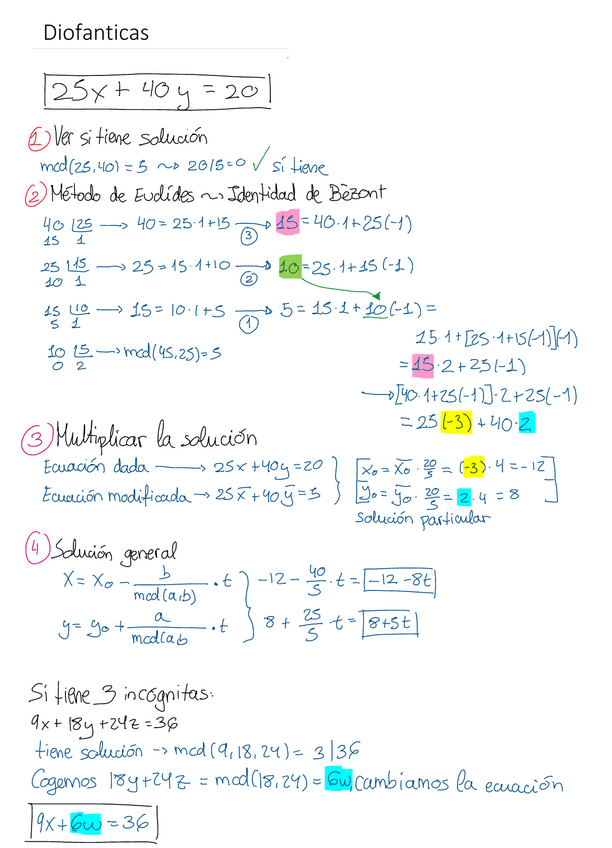 Diofanticas
25x + 40y = 20
① Ver si tiene solución
mcd(25,40) = 5 ~> 20/5=0 ✓ sí tiene
② Método de Euclídes ~> Identidad de Bèzont
40 |25 → 40 = 25·1+15 → ③ 15 = 40·1+25(-1)
15 1
25 |15 → 25 = 15·1+10 → ② 10 = 25·1+15(-1)
10 1
15 |10 → 15 = 10·1+5 → ① 5 = 15·1+10(-1) =
5 1
15·1+[25·1+15(-1)](-1)
10 |5 → mcd(45,25)=5
0 2
= 15·2+25(-1)
→ [40·1+25(-1)]·2+25(-1)
= 25(-3) + 40·2
③ Multiplicar la solución
Ecuación dada → 25x+40y=20
Ecuación modificada → 25x̄+40ȳ=5
x₀ = x̄₀ · 20/5 = (-3)·4 = -12
y₀ = ȳ₀ · 20/5 = 2·4 = 8
solución particular
④ Solución general
x = x₀ - b/mcd(a,b) · t } -12 - 40/5 · t = -12-8t
y = y₀ + a/mcd(a,b · t } 8 + 25/5 · t = 8+5t
Si tiene 3 incognitas:
9x + 18y + 24z = 36
tiene solución -> mcd (9,18,24) = 3|36
Cogemos 18y+24z = mcd(18,24) = 6w, cambiamos la ecuación
9x + 6w = 36